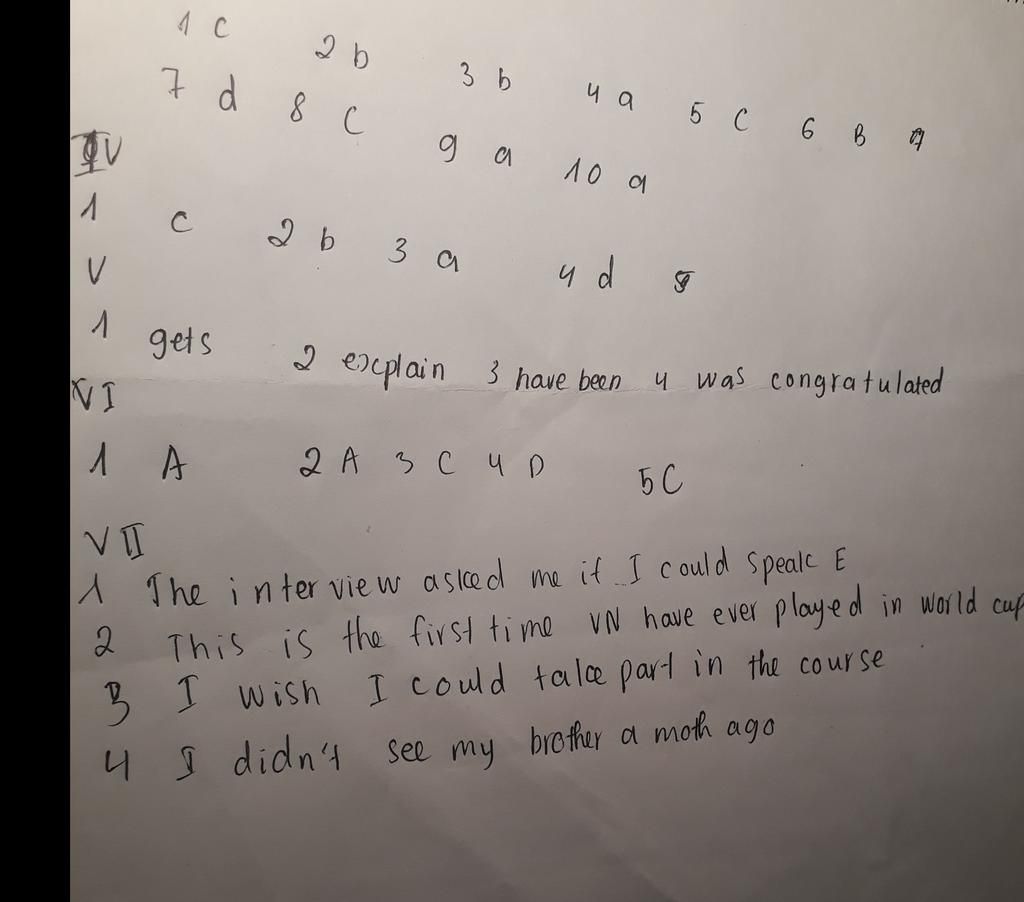 1 c 2 b 3 b 4 a 5 c 6 B
7 d 8 c 9 a 10 a
IV
1 c 2 b 3 a 4 d
V
1 gets 2 explain 3 have been 4 was congratulated
VI
1 A 2 A 3 C 4 D 5 C
VII
1 The inter view asked me if I could speak E
2 This is the first time VN have ever played in world cup
3 I wish I could take part in the course
4 I didn't see my brother a moth ago